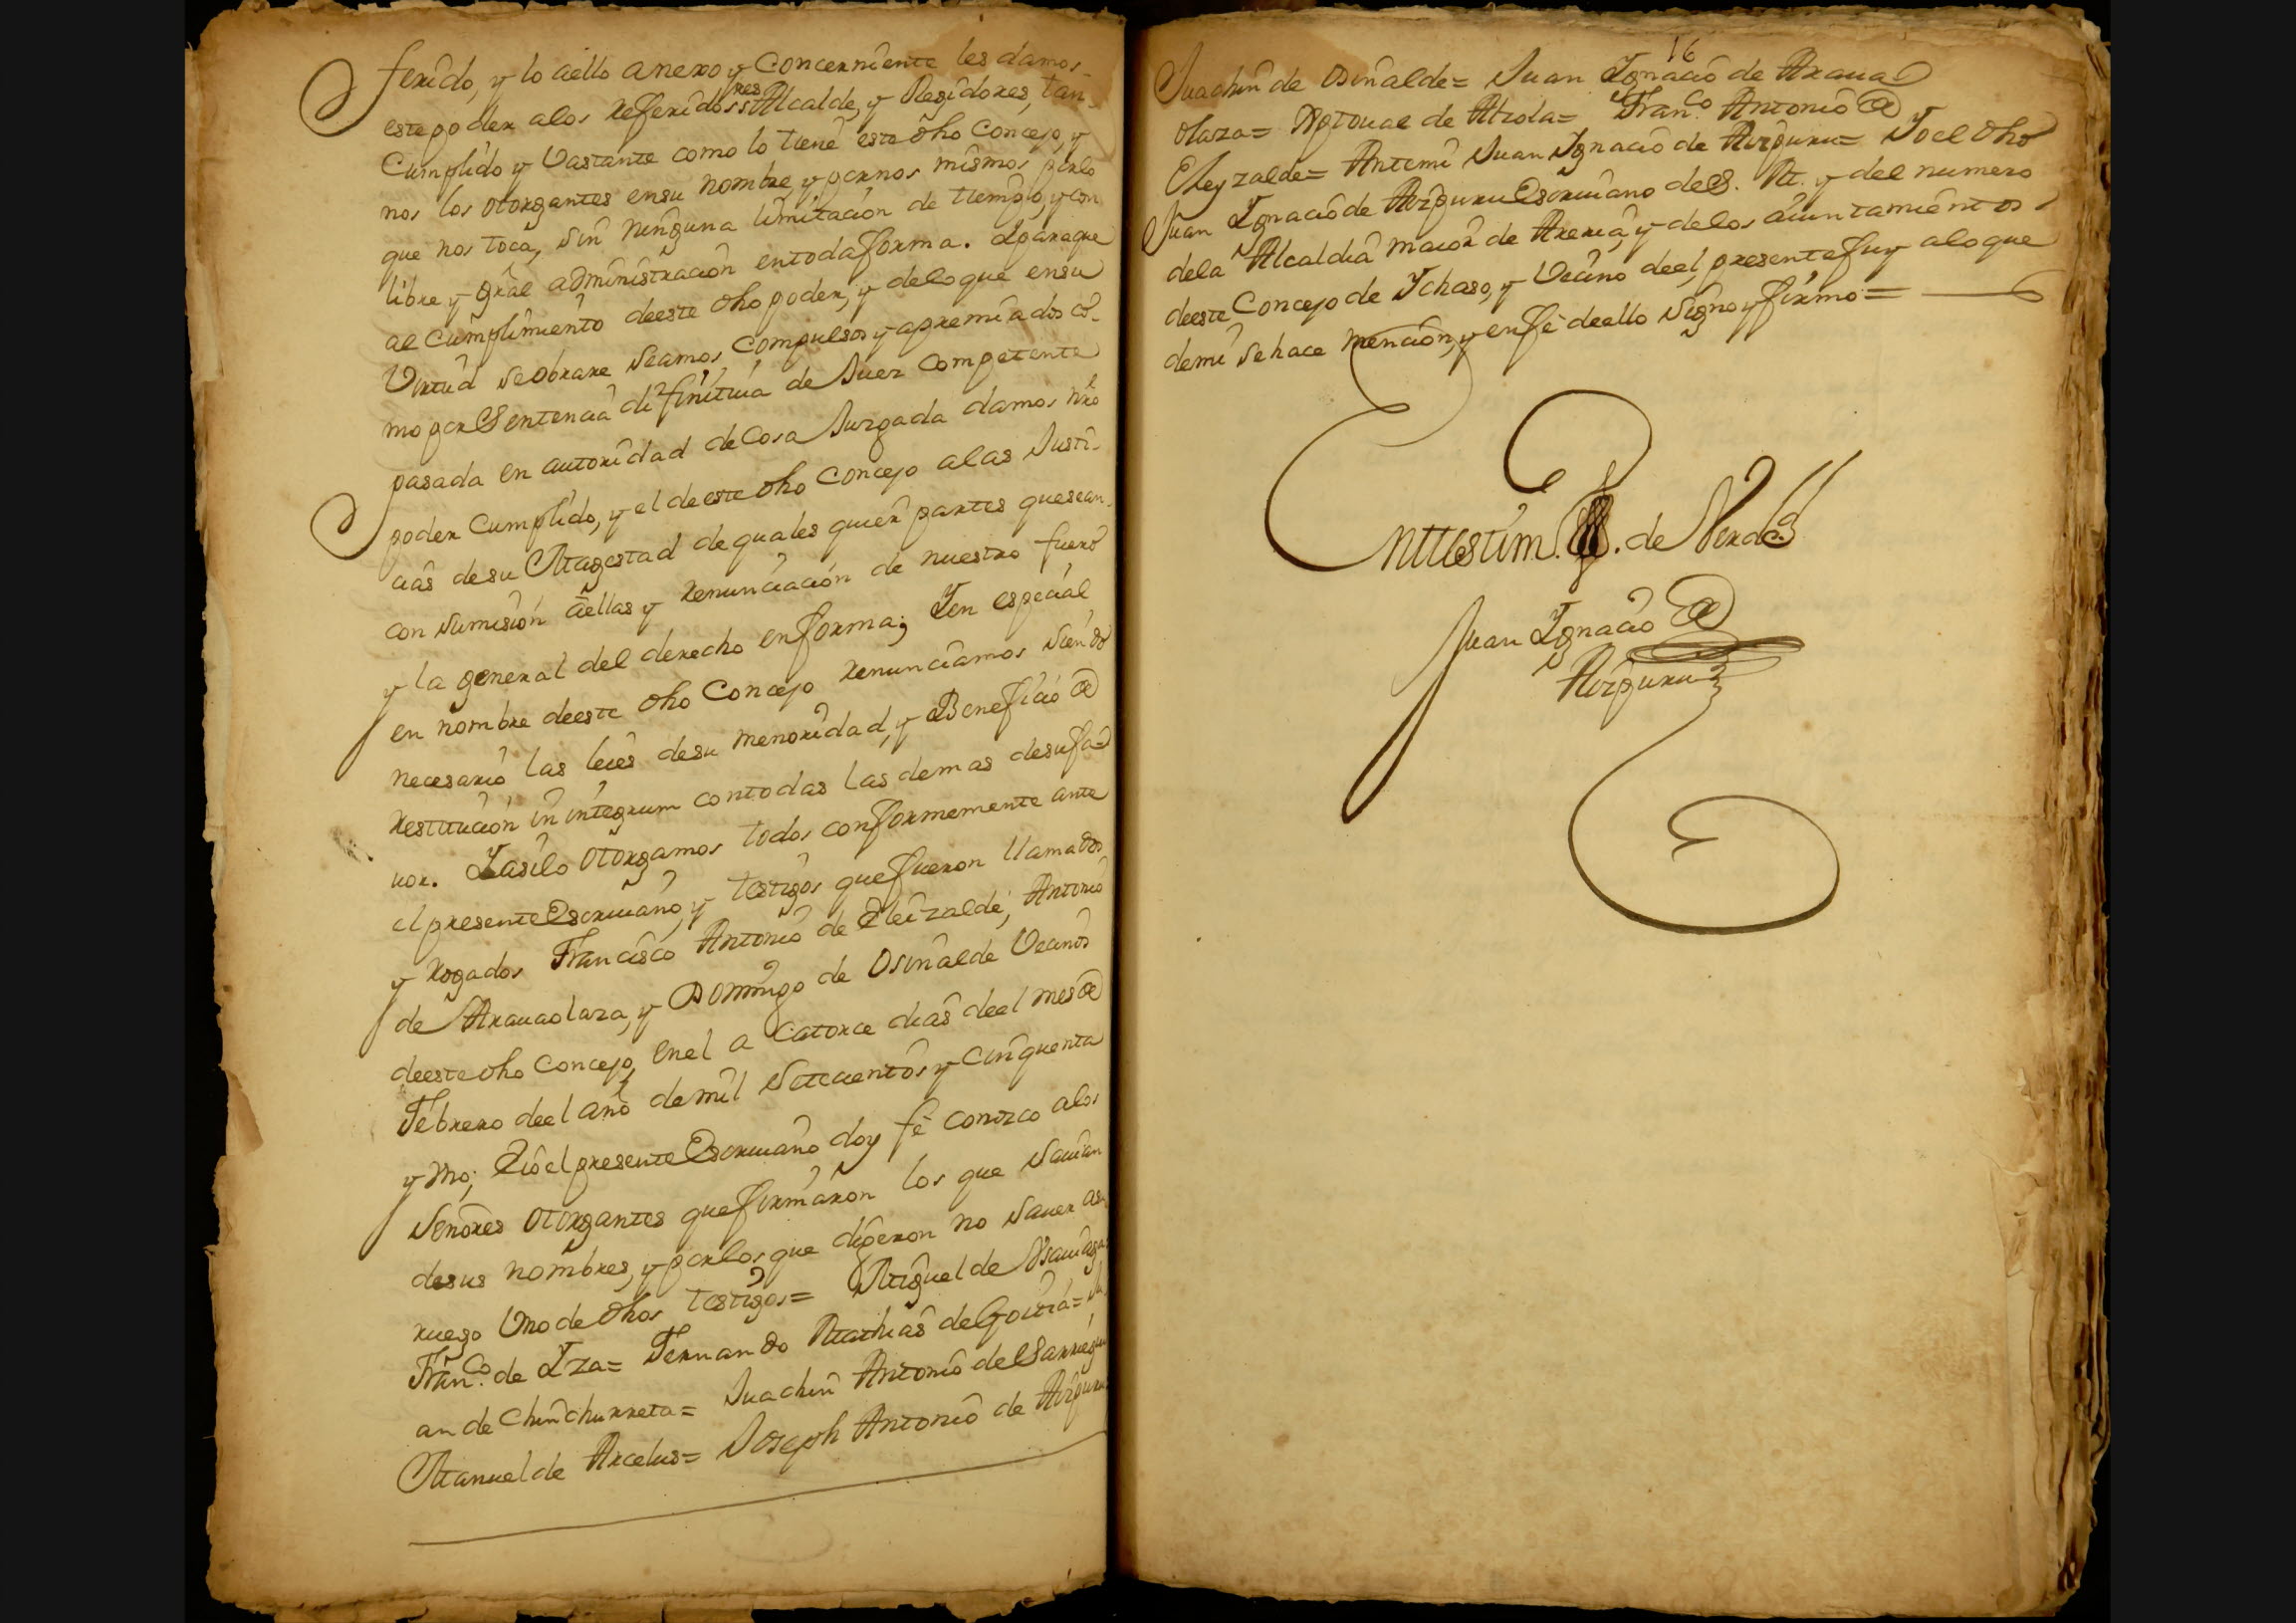 ferido, y lo aello anexo y Concerniente les damos
este poder alos referidos Sres Alcalde, y Regidores, tan
Cumplido y Vastante como lo tiene este dho Concejo, y
nos los otorgantes en su nombre, y por nos mismos por lo
que nos toca, sin ninguna limitación de tiempo, y con
libre y gral administración en toda forma. Y para que
al Cumplimiento deeste dho poder, y de lo que en su
Virtud se obrare seamos, Compulsos y apremiados co-
mo por Sentencia difinitiua de Juez Competente
pasada en autoridad de Cosa Juzgada damos nro
poder Cumplido, y el de este dho Concejo a las Justi-
cias de su Magestad de quales quier partes que sean
con sumisión aellas y renunciación de nuestro fuero
y la general del derecho en forma; Y en especial
en nombre deeste dho Concejo renunciamos siendo
necesario las leies de su menoridad, y Beneficio @
restitución in integrum con todas las demas de su fa-
uor. Y asilo otorgamos todos conformemente ante
el presente Escriuano, y testigos que fueron llamados
y rogados Francisco Antonio de Eleizalde, Antonio
de Arauaolaza, y Domingo de Osinalde Vecinos
deeste dho Concejo, en el a Catorce dias deel mes @
Febrero deel año de mil Setecientos y Cinquenta
y Vno; E io el presente Escriuano doy fé conozco alos
Señores otorgantes que firmaron los que sauian
de sus nombres, y por los que digeron no sauer a su
ruego Vno de dhos testigos= Miguel de Vsauiaga=
Franco. de Yza= Fernando Mathias de Goitia= Ju
an de Chinchurreta= Juachin Antonio de Sarregui
Manuel de Arcelus= Joseph Antonio de Aizpuru=
16
Juachin de Osinalde= Juan Ignacio de Araua
olaza= Xptoual de Alzola= Franco. Antonio @
Eleyzalde= Antemi Juan Ignacio de Aizpuru= Yo el dho
Juan Ignacio de Aizpuru Escriuano de S. M. y del numero
dela Alcaldia maior de Areria, y delos aiuntamientos
deeste Concejo de Ychaso, y Vecino deel, presente fuy alo que
demi se hace mención, y en fé deello signo y firmo=
En ttestim. . de Verdad
Juan Ignacio @
Aizpuru